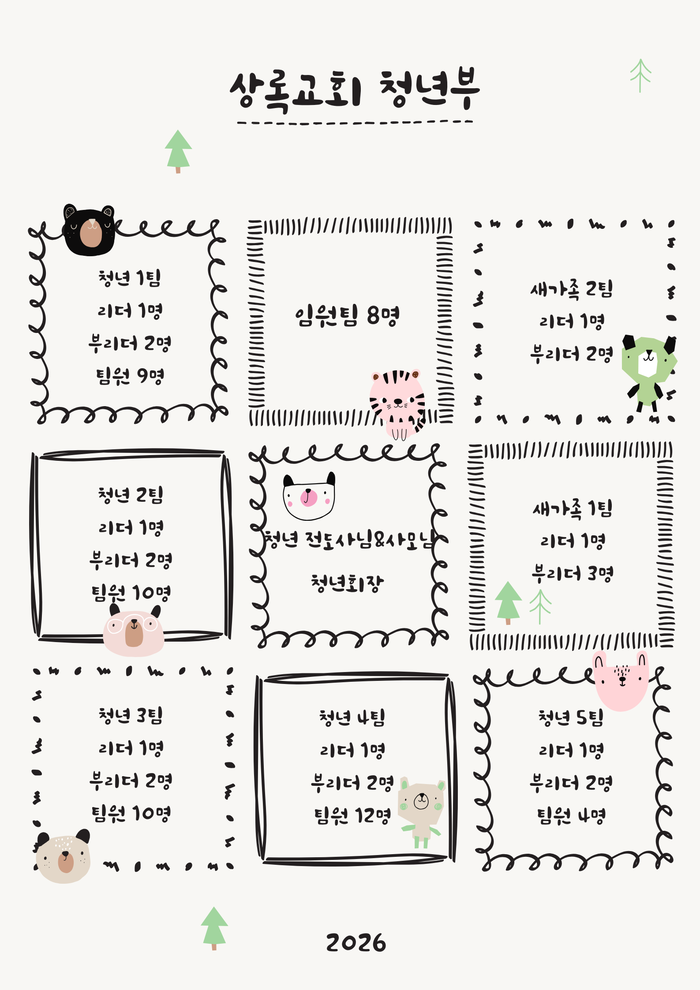 상록교회 청년부
청년 1팀
리더 1명
부리더 2명
팀원 9명
임원팀 8명
새가족 2팀
리더 1명
부리더 2명
청년 2팀
리더 1명
부리더 2명
팀원 10명
청년 전도사님&사모님
청년회장
새가족 1팀
리더 1명
부리더 3명
청년 3팀
리더 1명
부리더 2명
팀원 10명
청년 4팀
리더 1명
부리더 2명
팀원 12명
청년 5팀
리더 1명
부리더 2명
팀원 4명
2026